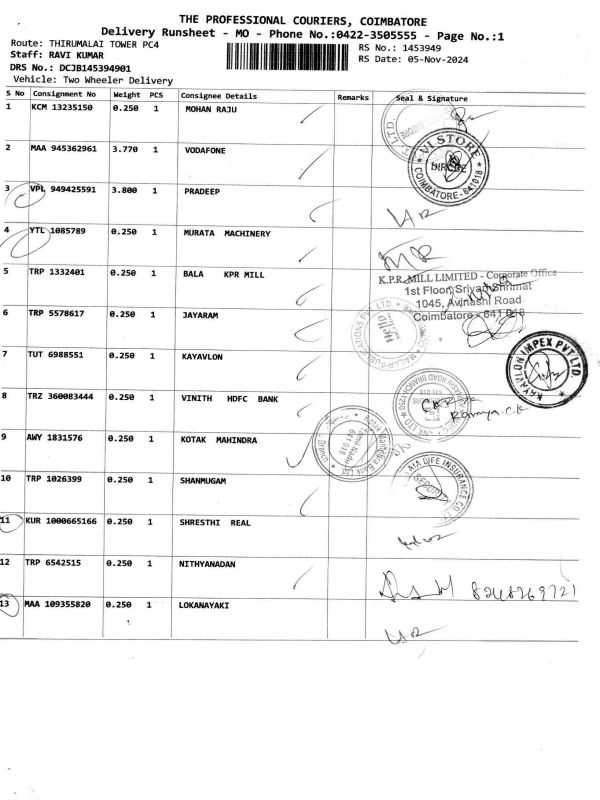 THE PROFESSIONAL COURIERS, COIMBATORE
Delivery Runsheet - MO - Phone No.:0422-3505555 - Page No.:1
Route: THIRUMALAI TOWER PC4
RS No.: 1453949
Staff: RAVI KUMAR
RS Date: 05-Nov-2024
DRS No.: DCJB145394901
Vehicle: Two Wheeler Delivery
S No Consignment No Weight PCS Consignee Details Remarks Seal & Signature
1 KCM 13235150 0.250 1 MOHAN RAJU
2 MAA 945362961 3.770 1 VODAFONE
VI STORE
COIMBATORE - 641 018
3 VPL 949425591 3.800 1 PRADEEP
4 YTL 1085789 0.250 1 MURATA MACHINERY
5 TRP 1332401 0.250 1 BALA KPR MILL
K.P.R. MILL LIMITED - Corporate Office
1st Floor, Srivari Shrimat
1045, Avinashi Road
Coimbatore - 641 018
6 TRP 5578617 0.250 1 JAYARAM
Hello
7 TUT 6988551 0.250 1 KAYAVLON
KAYAVLON IMPEX PVT LTD
8 TRZ 360083444 0.250 1 VINITH HDFC BANK
Ramya.c.k
9 AWY 1831576 0.250 1 KOTAK MAHINDRA
Kotak Mahindra Bank Ltd
641 018
10 TRP 1026399 0.250 1 SHANMUGAM
AIA LIFE INSURANCE CO.
11 KUR 1000665166 0.250 1 SHRESTHI REAL
12 TRP 6542515 0.250 1 NITHYANADAN
8248269721
13 MAA 109355820 0.250 1 LOKANAYAKI